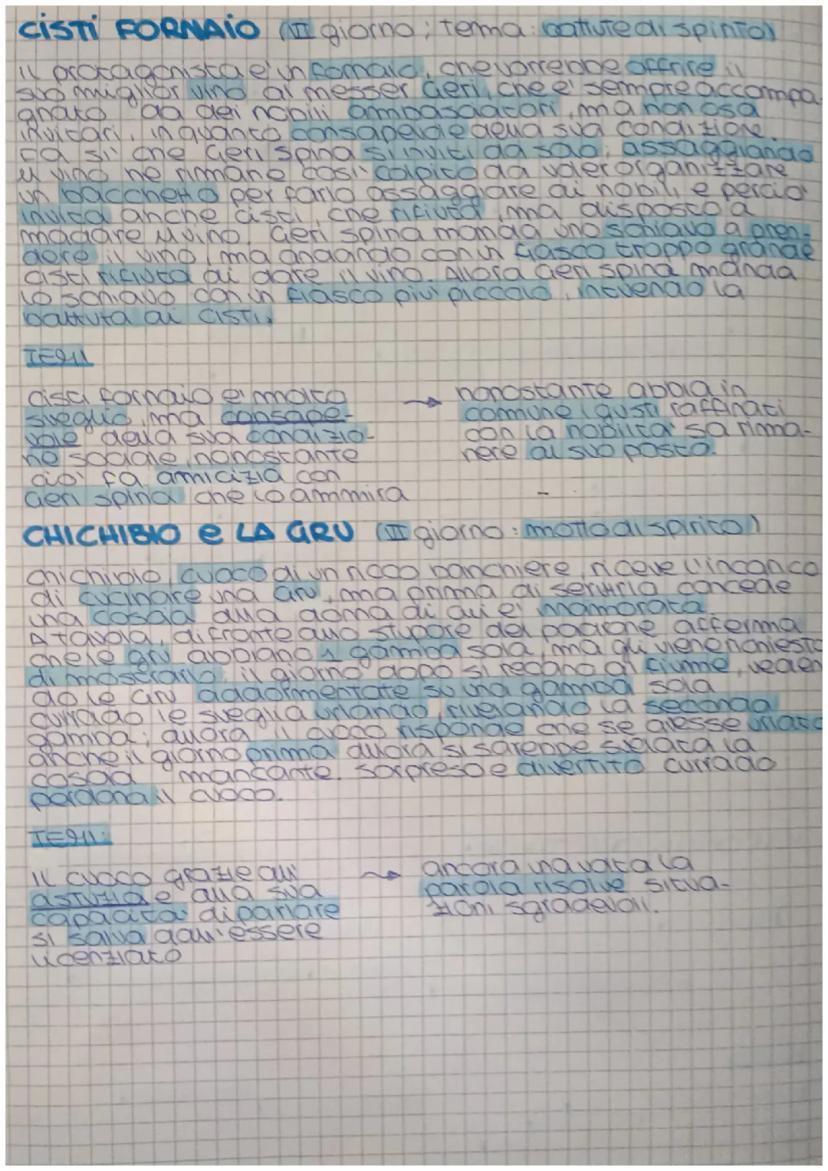 CISTI FORNAIO (VI giorno; tema: battute di spirito)
Il protagonista è un fornaio, che vorrebbe offrire il
suo miglior vino al messer Geri, che è sempre accompa
gnato da dei nobili ambasciatori, ma non osa
invitari, in quanto consapevole della sua condizione.
Fa sì che Geri Spina si inviti da solo; assaggiando
il vino ne rimane così colpito da voler organizzare
un bacchetto per farlo assaggiare ai nobili e perciò
invita anche Cisti, che rifiuta, ma disposto a
il vino. Geri Spina manda uno schiavo a pren-
dere il vino, ma andando con un fiasco troppo grande
Cisti rifiuta di dare il vino. Allora Geri Spina manda
lo schiavo con un fiasco più piccolo, la
battuta di Cisti.
TEMI
Cisti fornaio e' molto
sveglio, ma consape-
vole della sua condizio-
ne sociale, nonostante
ciò fa amicizia con
Geri Spina che lo ammira
→ nonostante abbia in
comune i gusti raffinati
con la nobiltà sa rima-
nere al suo posto.
CHICHIBIO e LA GRU (VI giorno: motto di spirito)
Chichibio, cuoco di un ricco banchiere, riceve l'incarico
di cucinare una gru, ma prima di servirla concede
una coscia alla donna di cui e' innamorato.
A tavola, di fronte allo stupore del padrone afferma
che le gru abbiano 1 gamba sola, ma gli viene richiesto
di mostrarlo, il giorno dopo si recano al fiume, veden
do le gru addormentate su una gamba sola
Currado le sveglia urlando, rivelando la seconda
gamba; allora il cuoco risponde che se avesse urlato
anche il giorno prima allora si sarebbe svelata la
coscia mancante. Sorpreso e divertito Currado
perdona il cuoco.
TEMI:
Il cuoco grazie all'
astuzia e alla sua
capacità di parlare
si salva dall'essere
licenziato
→ ancora una volta la
parola risolve situa-
zioni sgradevoli.